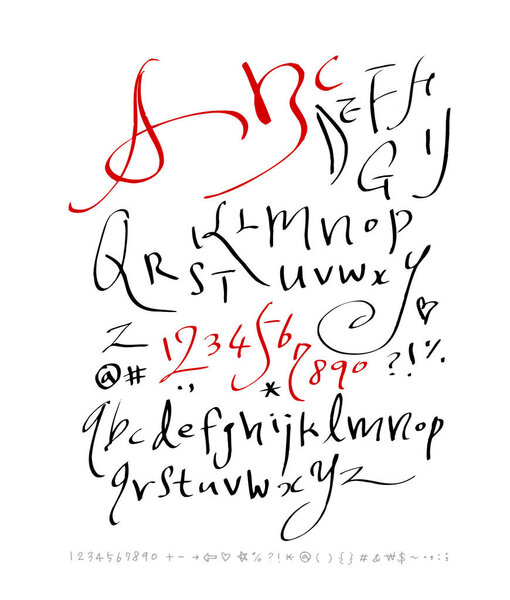 A B C
D E F H
G I J
K L M N O P
Q R S T U V W X Y
Z 1 2 3 4 5 6 ♡
@ # . , * 7 8 9 0 ? ! %
a b c d e f g h i j k l m n o p
q r s t u v w x y z
1 2 3 4 5 6 7 8 9 0 + - → ⇦ ♡ ☆ % ? ! * @ ( ) { } # & ₩ $ ~ · , : ;